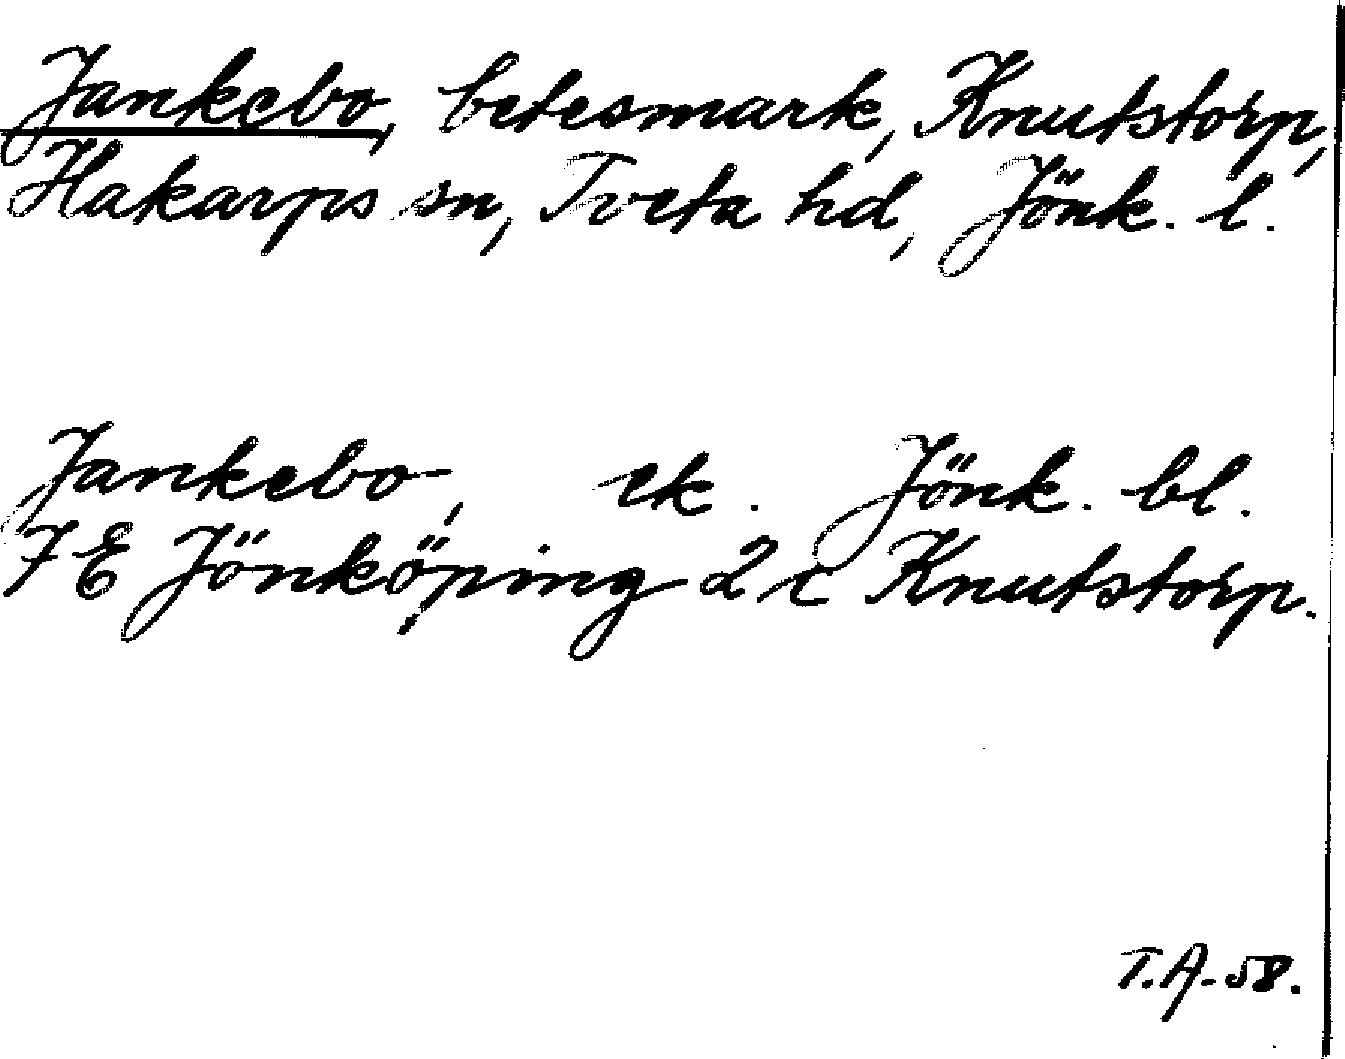 Jankebo, betesmark, Knutstorp,
Hakarps sn, Tveta hd, Jönk. l.
Jankebo, ek. Jönk. bl.
7E Jönköping 2 c Knutstorp.
T.A-58.